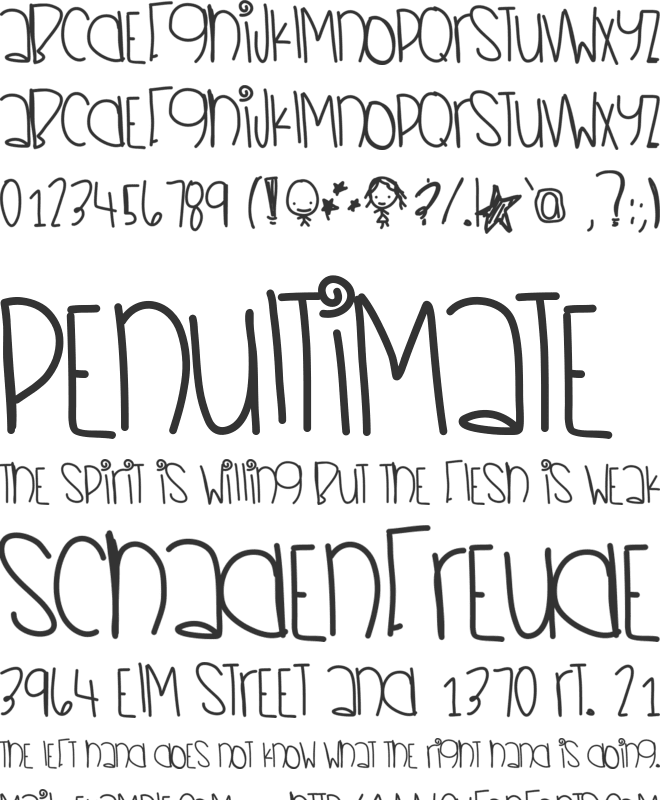 aBCdEFGhiJKlMnOPQrSTUVWXYZ
aBCdEFGhiJKlMnOPQrSTUVWXYZ
0123456789 (! ?/. `a ,?:;)
PEnUlTiMaTE
ThE SPiriT iS WilliNG BUT ThE FlESh iS WEaK
SChadEnFrEUdE
3964 ElM STrEET and 1370 rT. 21
ThE lEFT hand dOES nOT KnOW WhaT ThE riGhT hand iS dOinG.